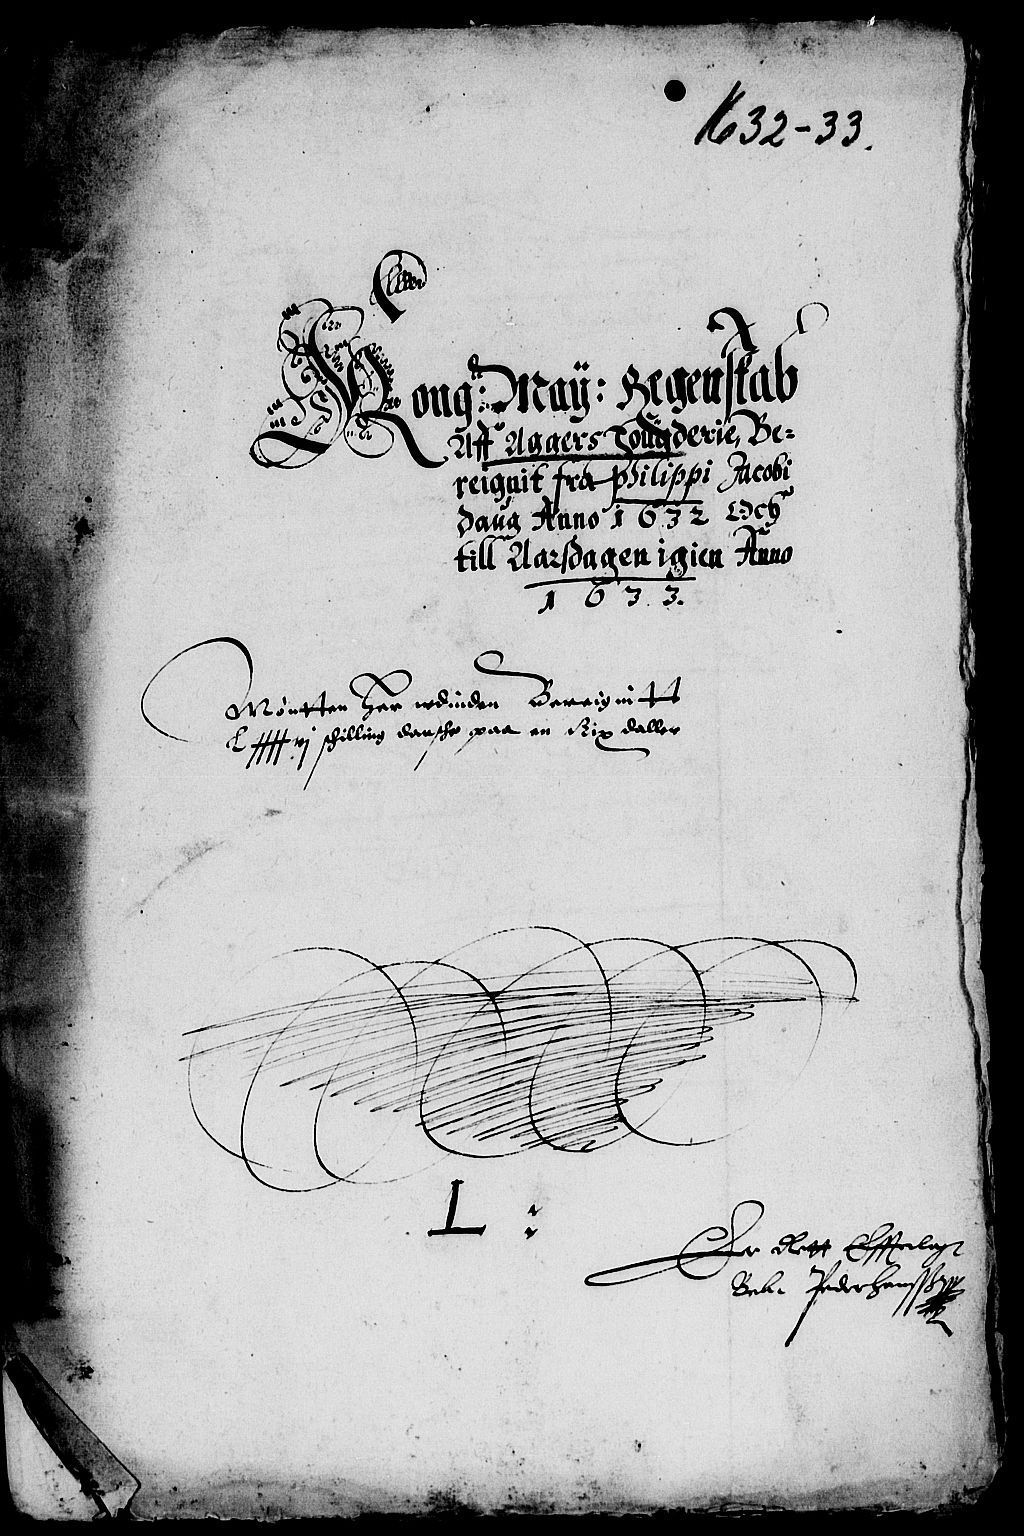 1632-33.
Kong: May: Regenskab
Aff Aggers Fougderie, Be-
reignit fra Philippi Jacobi
daug Anno 1632 Och
till Aarsdagen igien Anno
1633.
Mønten her udinden Bereignitt
schilling dansche paa en Rix daller
L :
Er Rett
Peder Hanssen